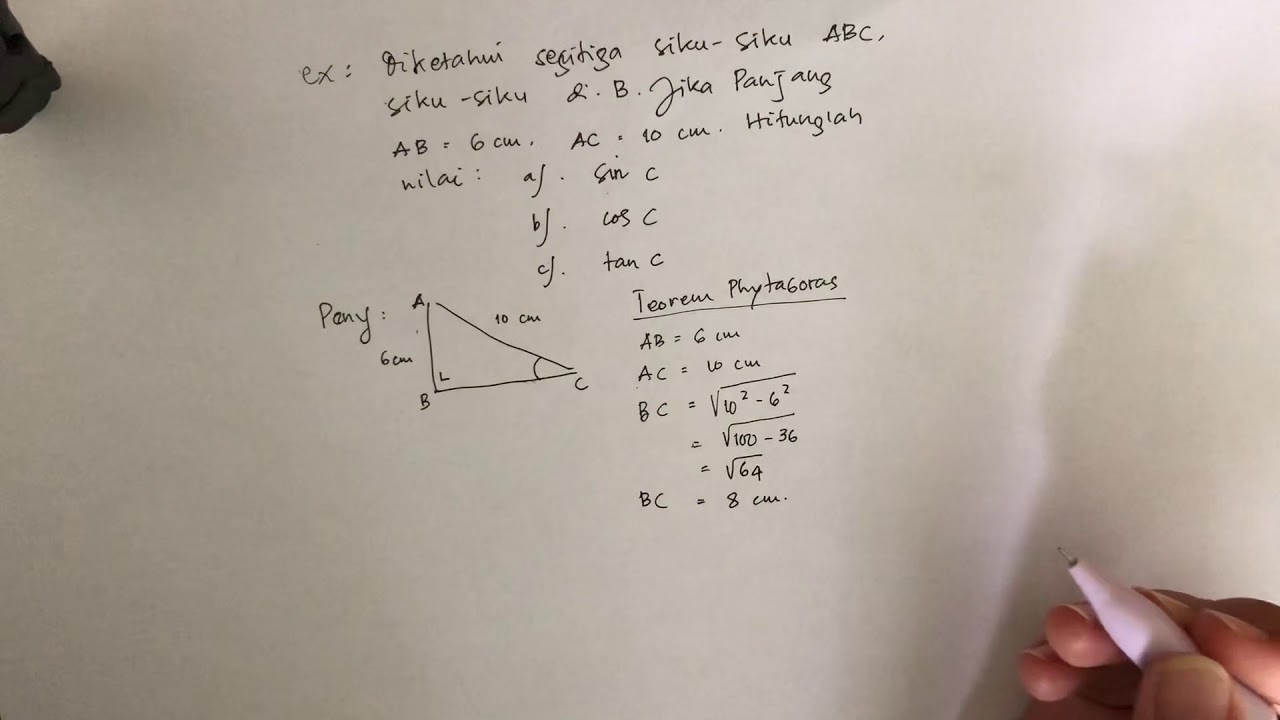 ex: Diketahui segitiga siku-siku ABC,
siku-siku di. B. Jika Panjang
AB = 6 cm, AC = 10 cm. Hitunglah
nilai: a). sin C
b). cos C
c). tan C
Peny:
A
10 cm
6 cm
B
C
Teorem Phytagoras
AB = 6 cm
AC = 10 cm
BC = √10² - 6²
= √100 - 36
= √64
BC = 8 cm.